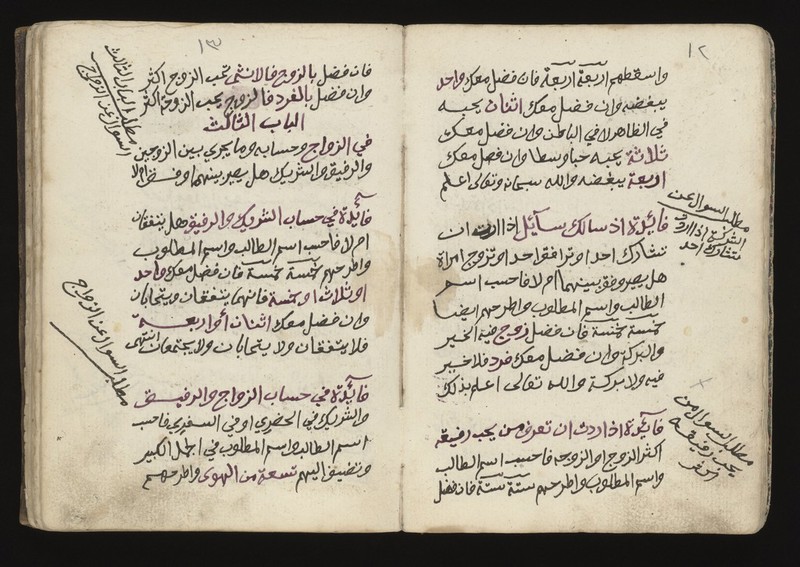 ١٢
واسقطهم اربعة اربعة فان فضل معك واحد
يبغضه وان فضل معك اثنان يحبه
في الظاهر لا في الباطن وان فضل معك
ثلاثة يحبه حبا وسطا وان فضل معك
اربعة يبغضه والله سبحانه وتعالى اعلم
فائدة اذ سالك سآئل اذا اردت ان
تشارك احدا او ترافق احد او تزوج امراة
هل يصير وفق بينهما ام لا فاحسب اسم
الطالب واسم المطلوب واطرحهم ايضا
خمسة خمسة فان فضل زوج فيه الخير
والبركة وان فضل معك فرد فلا خير
فيه ولا بركة والله تعالى اعلم بذلك
فآئدة اذا اردت ان تعرف من يحب رفيقه
اكثر الزوج او الزوجه فاحسب اسم الطالب
واسم المطلوب واطرحهم ستة ستة فان فضل
مطلب السوال عن
الشركة اذا اردت
تشارك احد
مطلب السوال من
يحب رفيقه
اكثر
١٣
فان فضل بالزوج فالانثى تحب الزوج اكثر
وان فضل بالفرد فالزوج يحب الزوجة اكثر
الباب الثالث
في الزواج وحسابه وما يجري بين الزوجين
والرفيق والشريك هل يصير بينهما وفق ام لا
فآئدة في حساب الشريك والرفيق هل يتفقان
ام لا فاحسب اسم الطالب واسم المطلوب
واطرحهم خمسة خمسة فان فضل معك واحد
او ثلاث او خمسة فانهما يتفقان ويتحابان
وان فضل معك اثنان أو اربعة
فلا يتفقان ولا يتحابان ولا يجتمعان انتهى
فآئدة في حساب الزواج والرفيق
والشريك في الحضر او في السفر فاحسب
اسم الطالب واسم المطلوب في الجمل الكبير
وتضيف اليهم تسعة من الهوى واطرحهم
مطلب الباب الثالث
السوال عن الزواج
مطلب السوال عن الزواج